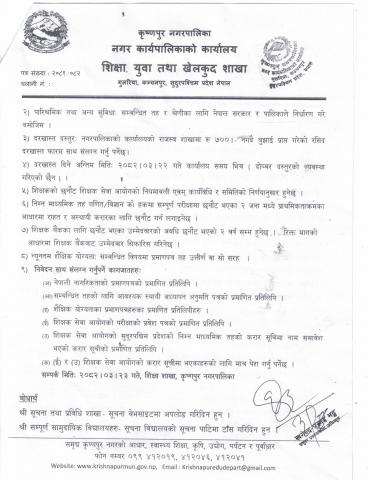 कृष्णपुर नगरपालिका
नगर कार्यपालिकाको कार्यालय
शिक्षा युवा तथा खेलकुद शाखा
गुलरिया, कञ्चनपुर, सुदुरपश्चिम प्रदेश नेपाल
पत्र संख्या : २०८१/०८२
चलानी नं. :
२) पारिश्रमिक तथा अन्य सुविधाः सम्बन्धित तह र श्रेणीका लागि नेपाल सरकार र पालिकाले निर्धारण गरे
बमोजिम ।
३) दरखास्त दस्तुरः नगरपालिकाको कार्यालयको राजस्व शाखामा रु ७००।- नगदै बुझाई प्राप्त गरेको रसिद
दरखास्त फारम साथ संलग्न गर्नु पर्नेछ।
४) दरखास्त दिने अन्तिम मितिः २०८२।०३।२२ गते कार्यालय समय भित्र ( दोब्बर दस्तुरको व्यवस्था
गरिएको छैन । ) ।
५) शिक्षकको छनौट शिक्षक सेवा आयोगको नियमावली एवम् कार्यविधि र समितिको निर्णयानुसार हुनेछ ।
६) निम्न माध्यमिक तह गणित/विज्ञान को हकमा सम्पूर्ण परीक्षामा छनौट भएका २ जना मध्ये प्राथमिकताक्रमका
आधारमा राहत र अस्थायी करारका लागि छनौट गर्न लगाइनेछ ।
७) शिक्षक बैंकका लागि छनौट भएका उम्मेदवारको अवधि छनौट भएको २ वर्ष सम्म हुनेछ । रिक्त मागको
आधारमा शिक्षक बैंकबाट उम्मेदवार सिफारिस गरिनेछ ।
८) न्यूनतम शैक्षिक योग्यताः सम्बन्धित विषयमा प्रमाणपत्र तह उत्तीर्ण वा सो सरह ।
९) निवेदन साथ संलग्न गर्नुपर्ने कागजातहरुः
(अ) नेपाली नागरिकताको प्रमाणपत्रको प्रमाणित प्रतिलिपि ।
(आ) सम्बन्धित तहको लागि आवश्यक स्थायी अध्यापन अनुमति पत्रको प्रमाणित प्रतिलिपि ।
(इ) शैक्षिक योग्यताका प्रमाणपत्रहरुका प्रमाणित प्रतिलिपिहरु ।
(ई) शिक्षक सेवा आयोगको परीक्षाको प्रवेश पत्रको प्रमाणित प्रतिलिपि ।
(उ) शिक्षक सेवा आयोगको सुदुरपश्चिम प्रदेशको निम्न माध्यमिक तहको करार सूचिमा नाम समावेश
भएको करार सूचीको प्रमाणित प्रतिलिपि ।
(ई) र (उ) शिक्षक सेवा आयोगको करार सूचीमा भएकाहरुको लागि मात्र पेश गर्नु पर्नेछ ।
सम्पर्क मितिः २०८२।०३।२३ गते, शिक्षा शाखा, कृष्णपुर नगरपालिका
बोधार्थ
श्री सूचना तथा प्रविधि शाखा- सूचना वेभसाइटमा अपलोड गरिदिन हुन ।
श्री सम्पूर्ण सामुदायिक विद्यालयहरु- सूचना विद्यालयको सूचना पाटिमा टाँस गरिदिन हुन ।
समृद्ध कृष्णपुर नगरको आधार, स्वास्थ्य शिक्षा, कृषि, उद्योग, पर्यटन र पुर्वाधार
फोन नम्बर ०९९ ४१२०१९, ४१२०४६, ४१२०४१
Website: www.krishnapurmun.gov.np, Email : Krishnapuredudepart@gmail.com